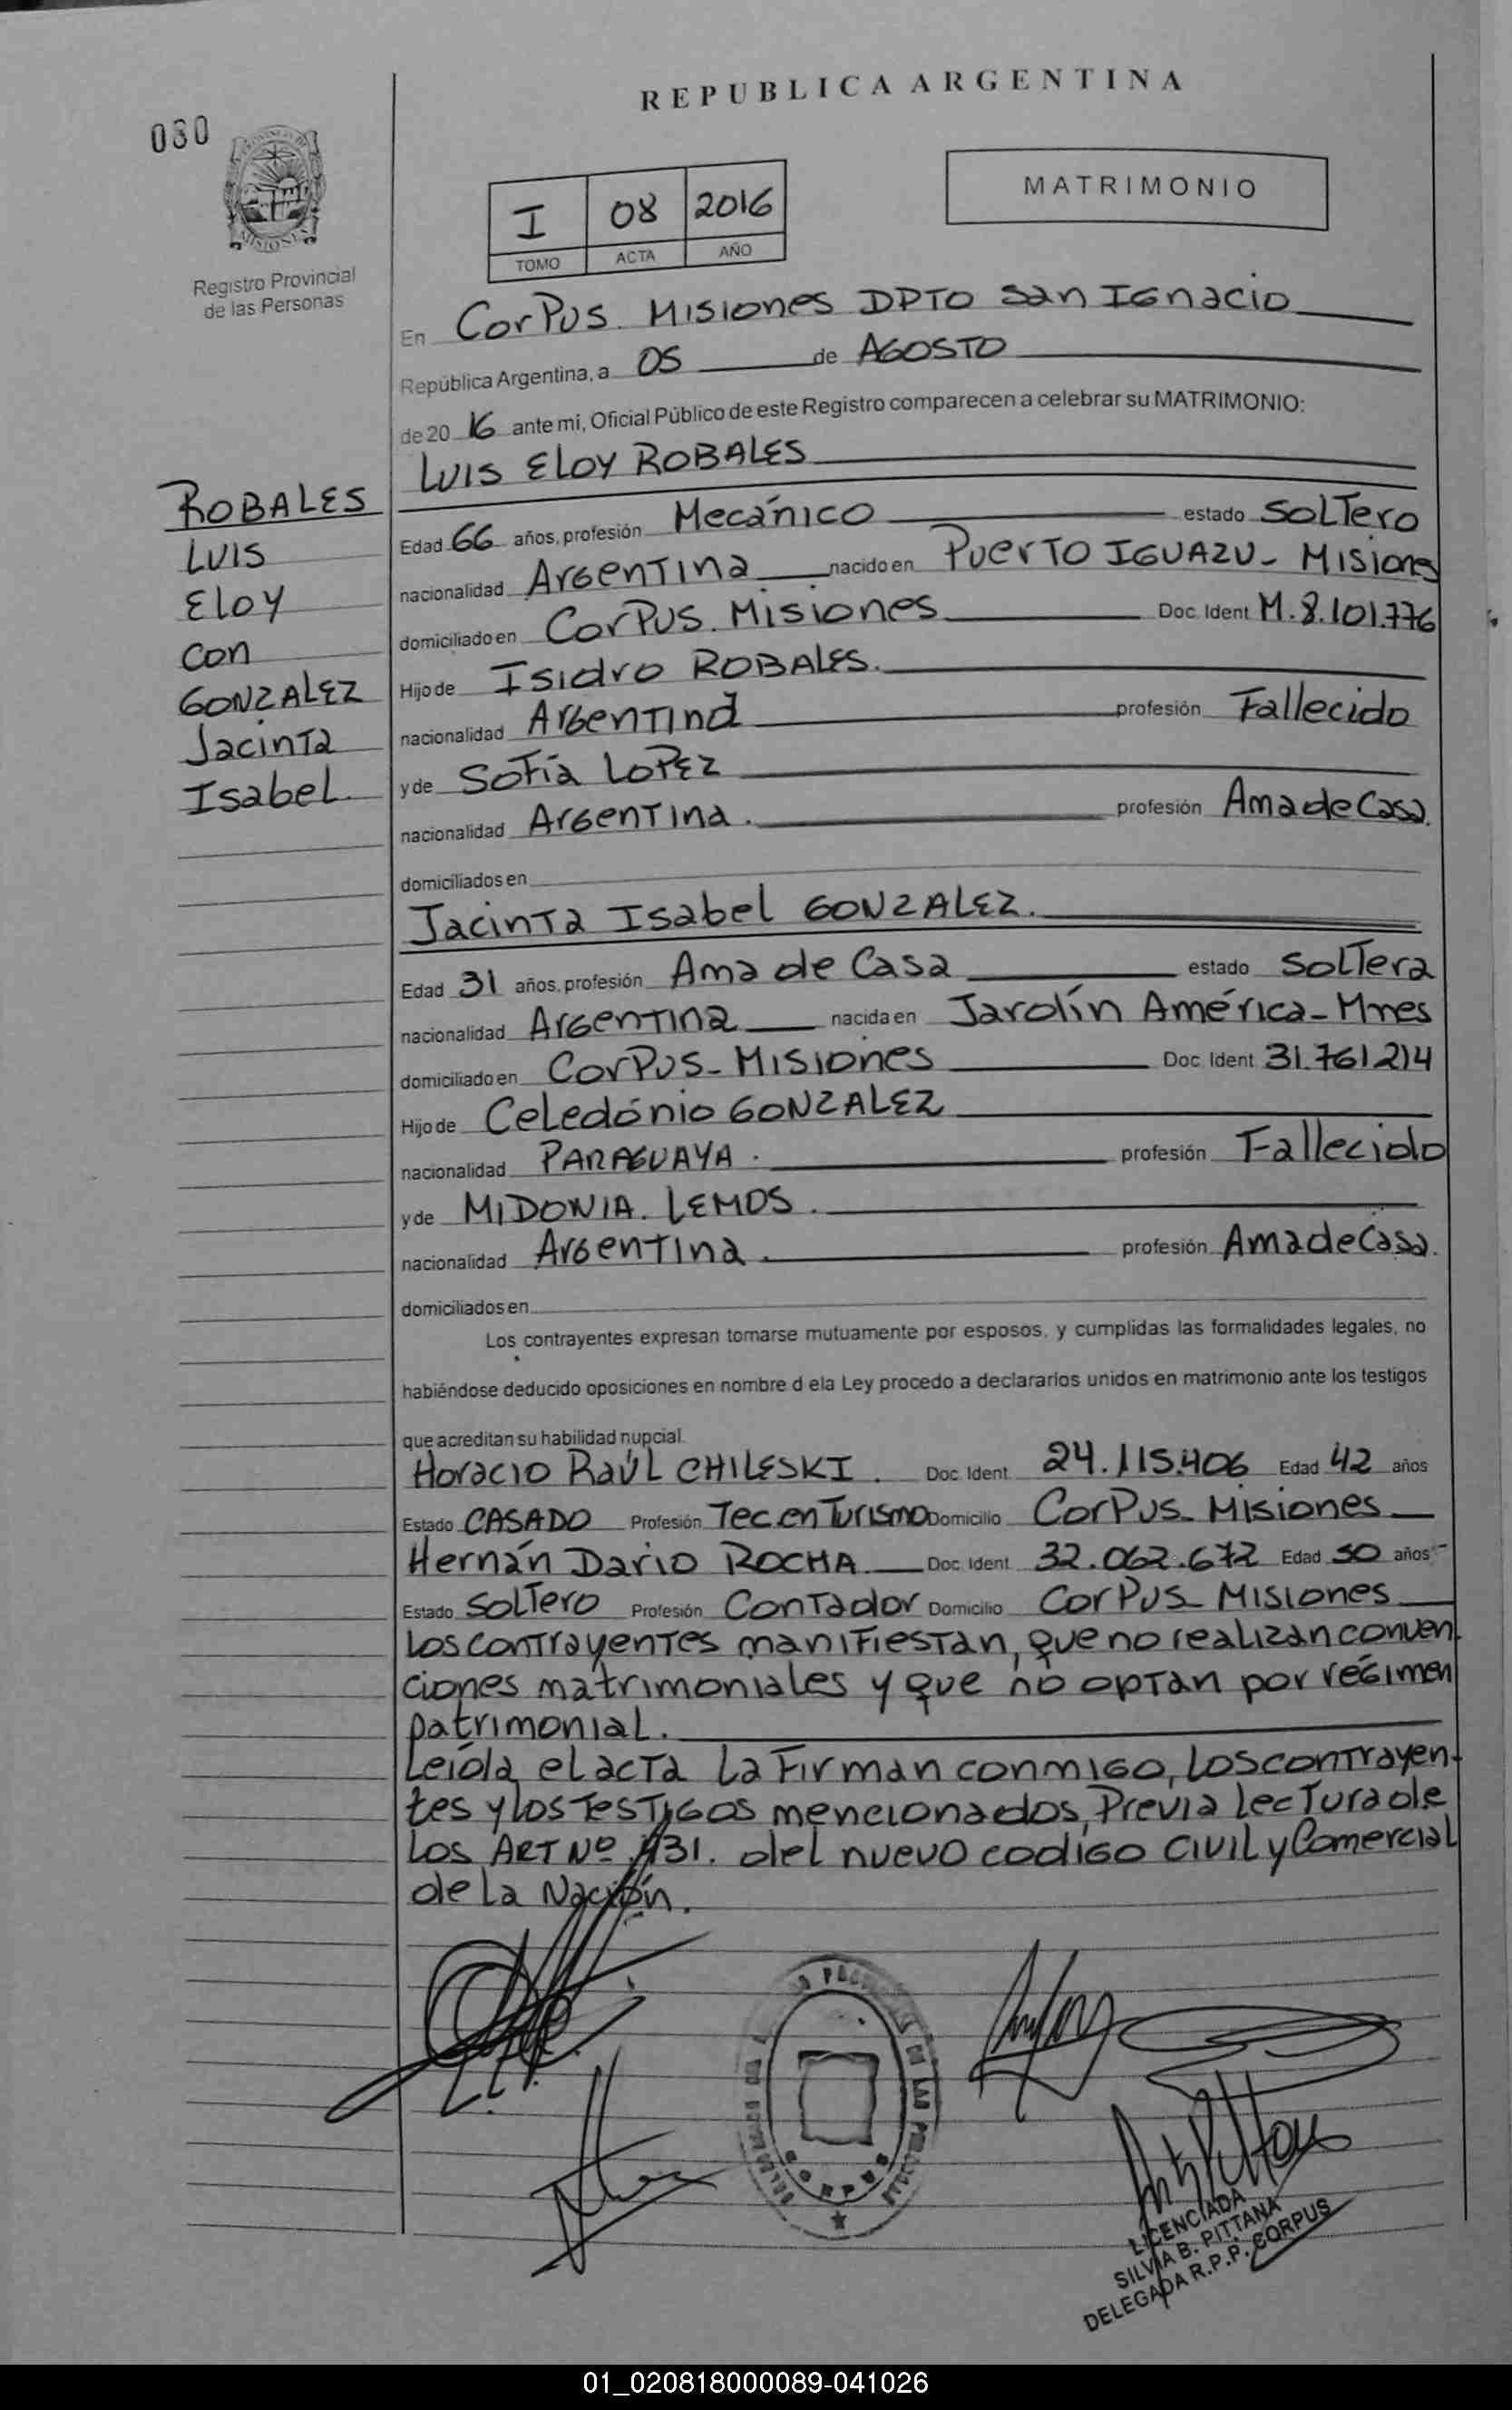 REPUBLICA ARGENTINA
030
MISIONES
Registro Provincial
de las Personas
I 08 2016
TOMO ACTA AÑO
MATRIMONIO
En Corpus. Misiones DPTO San Ignacio
República Argentina, a 05 de AGOSTO
de 20 16 ante mi, Oficial Público de este Registro comparecen a celebrar su MATRIMONIO:
LUIS ELOY ROBALES
ROBALES
LUIS
ELOY
con
GONZALEZ
Jacinta
Isabel.
Edad 66 años, profesión Mecánico estado Soltero
nacionalidad Argentina nacido en Puerto IGUAZU - Misiones
domiciliado en Corpus. Misiones Doc. Ident M. 8.101.776
Hijo de Isidro ROBALES.
nacionalidad Argentina profesión Fallecido
y de Sofía LOPEZ
nacionalidad Argentina. profesión Ama de Casa.
domiciliados en
Jacinta Isabel GONZALEZ.
Edad 31 años, profesión Ama de Casa estado Soltera
nacionalidad Argentina nacida en Jarolín América - Mnes
domiciliado en Corpus - Misiones Doc. Ident 31.761214
Hijo de Celedónio GONZALEZ
nacionalidad PARAGUAYA. profesión Fallecido
y de MIDONIA. LEMOS.
nacionalidad Argentina. profesión Ama de Casa.
domiciliados en
Los contrayentes expresan tomarse mutuamente por esposos, y cumplidas las formalidades legales, no
habiéndose deducido oposiciones en nombre d ela Ley procedo a declararlos unidos en matrimonio ante los testigos
que acreditan su habilidad nupcial.
Horacio Raúl CHILESKI. Doc. Ident. 24.115.406 Edad 42 años
Estado CASADO Profesión Tec en Turismo Domicilio Corpus - Misiones
Hernán Dario ROCHA. Doc. Ident. 32.062.672 Edad 30 años
Estado Soltero Profesión Contador Domicilio Corpus - Misiones
los contrayentes manifiestan, que no realizan conven
ciones matrimoniales y que no optan por régimen
patrimonial.
Leída el acta la firman conmigo, los contrayen-
tes y los testigos mencionados, Previa lectura de
los ART Nº 431. del nuevo codigo civil y Comercial
de la Nación.
CORPUS
LICENCIADA
SILVIA B. PITTANA
DELEGADA R.P.P. CORPUS
01_020818000089-041026